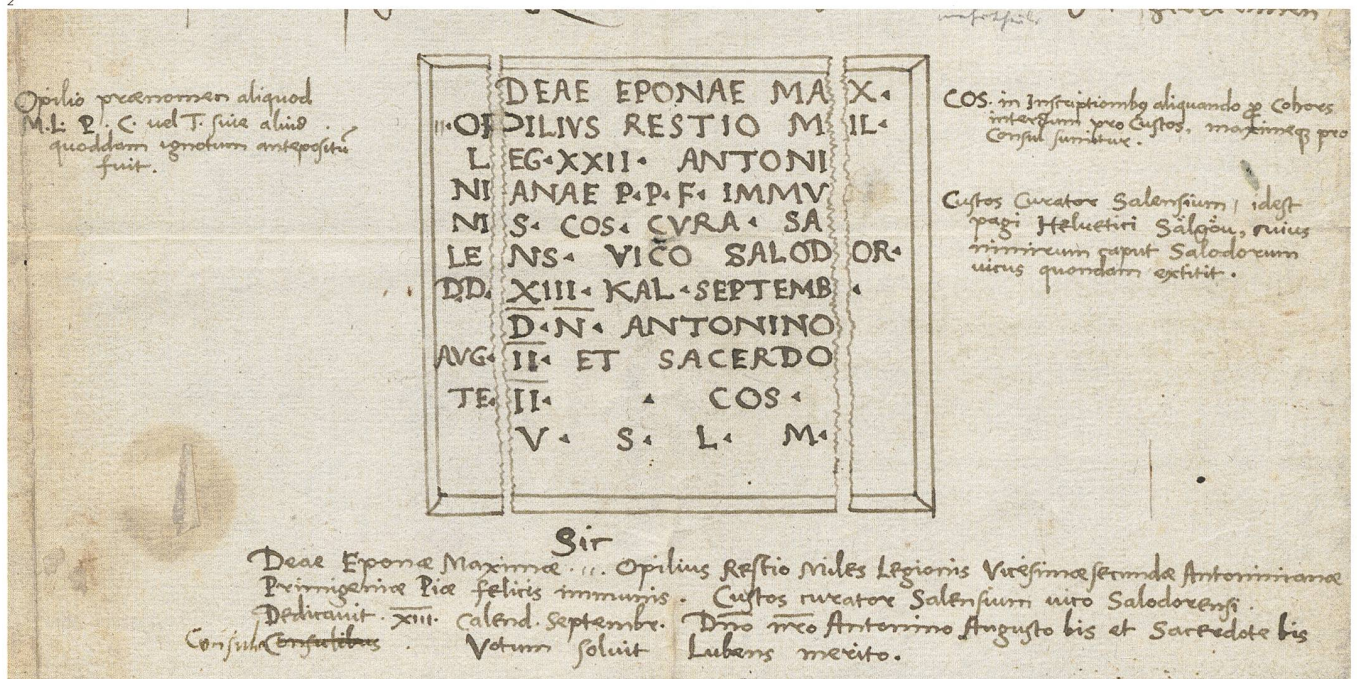 Opilio prænomen aliquod
M. L. P. C. uel T. siue aliud
quoddam ignotum antepositū
fuit.
DEAE EPONAE MAX.
OPILIVS RESTIO MIL.
LEG. XXII. ANTONI
NIANAE P. P. F. IMMV
NIS. COS. CVRA. SA
LENS. VICO SALODOR.
D.D. XIII. KAL. SEPTEMB.
D. N. ANTONINO
AVG. II. ET SACERDO
TE. II. COS.
V. S. L. M.
COS. in Inscriptionibq aliquando ꝓ Cohors
interdum pro Custos, maximeq pro
Consul sumitur.
Custos Curator Salensium, idest
pagi Heluetici Sälgöu, cuius
nimirum caput Salodorum
uicus quondam extitit.
Sic
Deae Eponæ Maximæ .... Opilius Restio Miles Legionis Vicesimæsecundæ Antoninianæ
Primigeniæ Piæ felicis immunis. Custos curator Salensium uico Salodorensi.
Dedicauit XIII. Calend. Septembr. Dn̄o nr̄o Antonino Augusto bis et Sacerdote bis
Consulibus. Votum soluit Lubens merito.